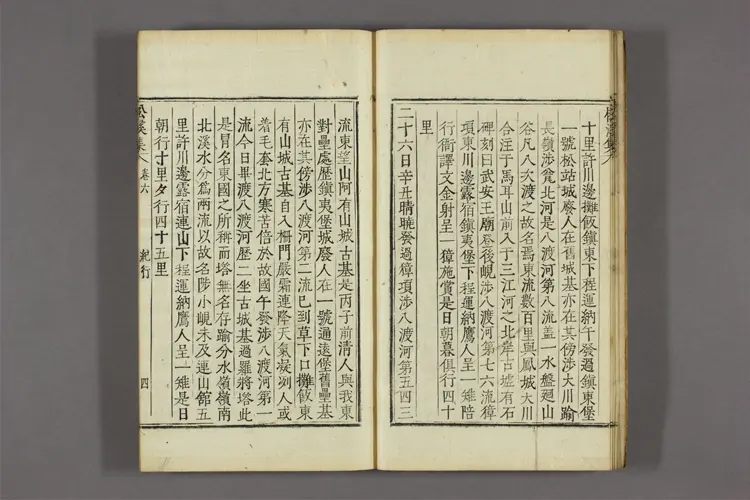 十里許川邊攤飯鎭東下程運納午發過鎭東堡
一號松站城廢人在舊城基亦在其傍涉大川踰
長嶺涉瓮北河是八渡河第八流盖一水盤廻山
谷凡八次渡之故名焉東流數百里與鳳城大川
合注于馬耳山前入于三江河之北岸古墟有石
碑刻曰武安王廟春後峴涉八渡河第七六流獐
項東川邊露宿鎭夷堡下程運納鷹人呈一雉陪
行衙譯文金射呈一獐施賞是日朝暮俱行四十
里
二十六日辛丑晴曉發過獐項涉八渡河第五四三
流東望山阿有山城古基是丙子前淸人與我東
對壘處歷鎭夷堡城廢人在一號通遠堡舊壘基
亦在其傍涉八渡河第二流已到草下口攤飯東
有山城古基自入柵門嚴霜連降天氣凝冽人或
着毛套北方寒苦倍於故國午發涉八渡河第一
流今日畢渡八渡河歷二坐古城基過羅將塔此
是冒名東國之所稱而塔無名存踰分水嶺嶺南
北溪水分爲兩流以故名陟小峴未及連山館五
里許川邊露宿連山下程運納鷹人呈一雉是日
朝行十里夕行四十五里
松溪集 卷六 紀行 四